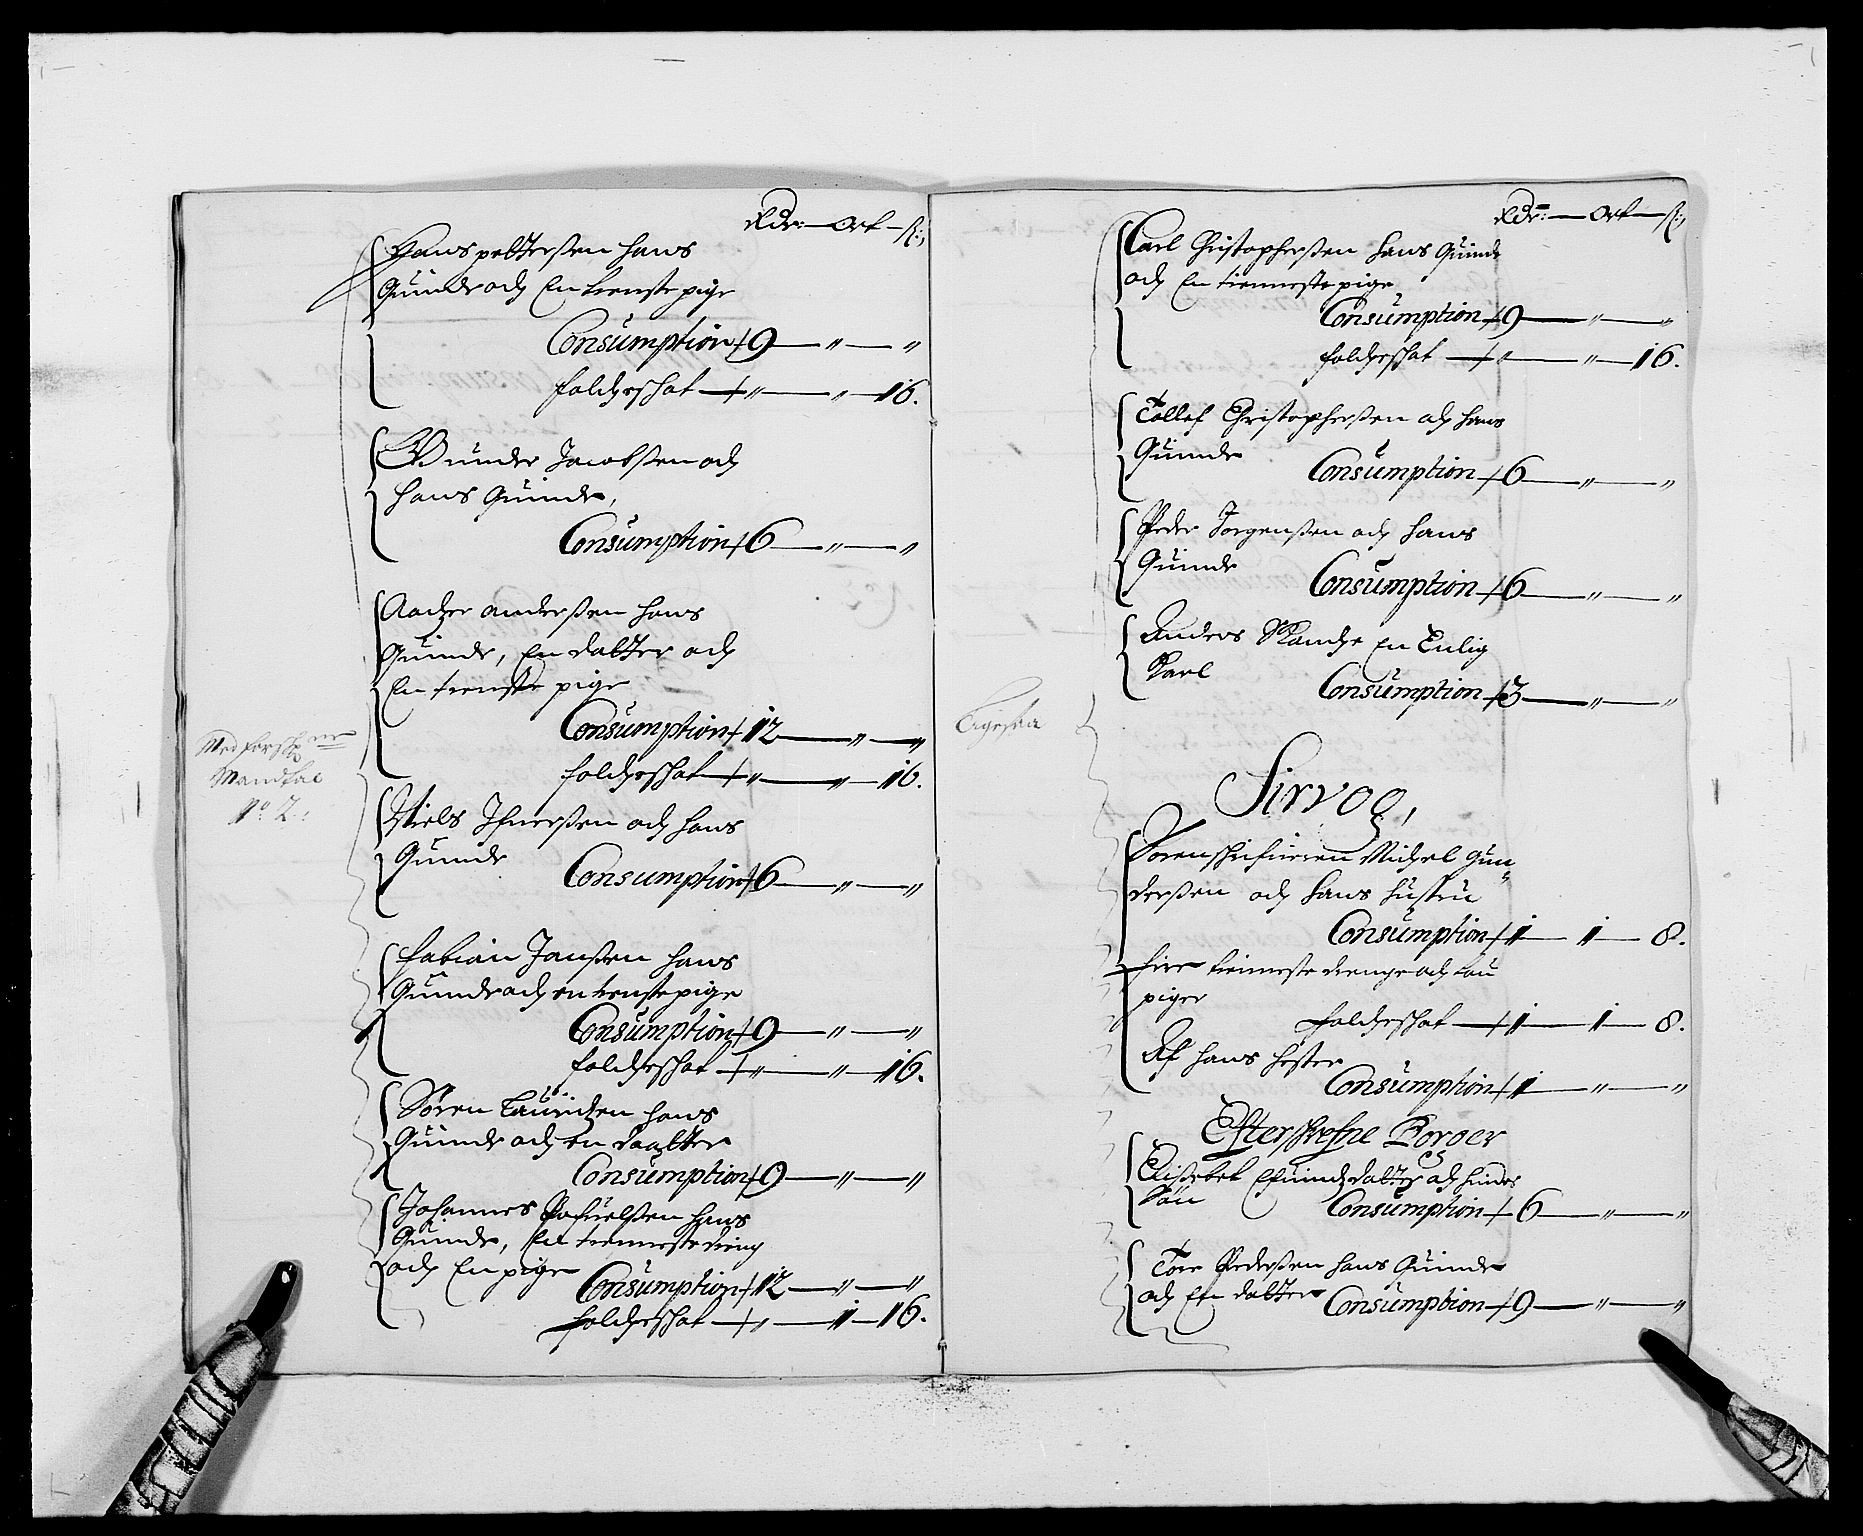 Rdr: — Ort — ſ:
Hans petterßen hans
Quinde och En tienste pige
Consumption + 9 — " — "
folcheschat + " — " — 16.
Gunder Jacobßen och
hans Quinde,
Consumption + 6 — " — "
Aacher anderßen hans
Quinde, En datter och
En tienste pige
Consumption + 12 — " — "
folcheschat + " — " — 16.
Mandtal
No 2:
Niels Ifuerßen och hans
Quinde
Consumption + 6 — " — "
fabian Janßen hans
Quinde och en tienste pige
Consumption + 9 — " — "
folcheschat + " — " — 16.
Søren Lauritzen hans
Quinde och en daatter
Consumption + 9 — " — "
Johannes Pofuelßen hans
Quinde, En tienneste dreng
och En pige Consumption + 12 — " — "
folcheschat + " — 1 — 16.
Rdr: — Ort — ſ:
Carl Christopherßen hans Quinde
och En tienneste pige
Consumption + 9 — " — "
folcheschat + " — " — 16.
Tollef Christopherßen och hans
Quinde Consumption + 6 — " — "
Peder Jorgenßen och hans
Quinde Consumption + 6 — " — "
Anders Skandche En Enlig
Karl Consumption + 3 — " — "
Ligesaa
Sirvog,
Sorenschrifueren Michel Gun„
derßen och hans hustru
Consumption + 1 — 1 — 8.
fire tienneste drenge och tou
piger
folcheschat + 1 — 1 — 8.
Af hans hester
Consumption + 1 — " — "
Efterschrefne Borger
Elißebet Efuindzdatter och hindes
Søn Consumption + 6 — " — "
Tore Pederßen hans Quinde
och En datter Consumption + 9 — " — "